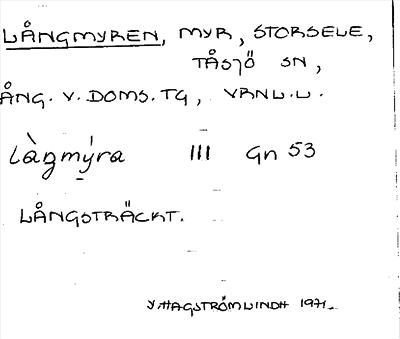 LÅNGMYREN, MYR, STORSELE,
TÅSJÖ SN,
ÅNG. V. DOMS. TG, VRNL.L.
làgmýra III Gn 53
LÅNGSTRÄCKT.
Y. HAGSTRÖM LINDH 1971.